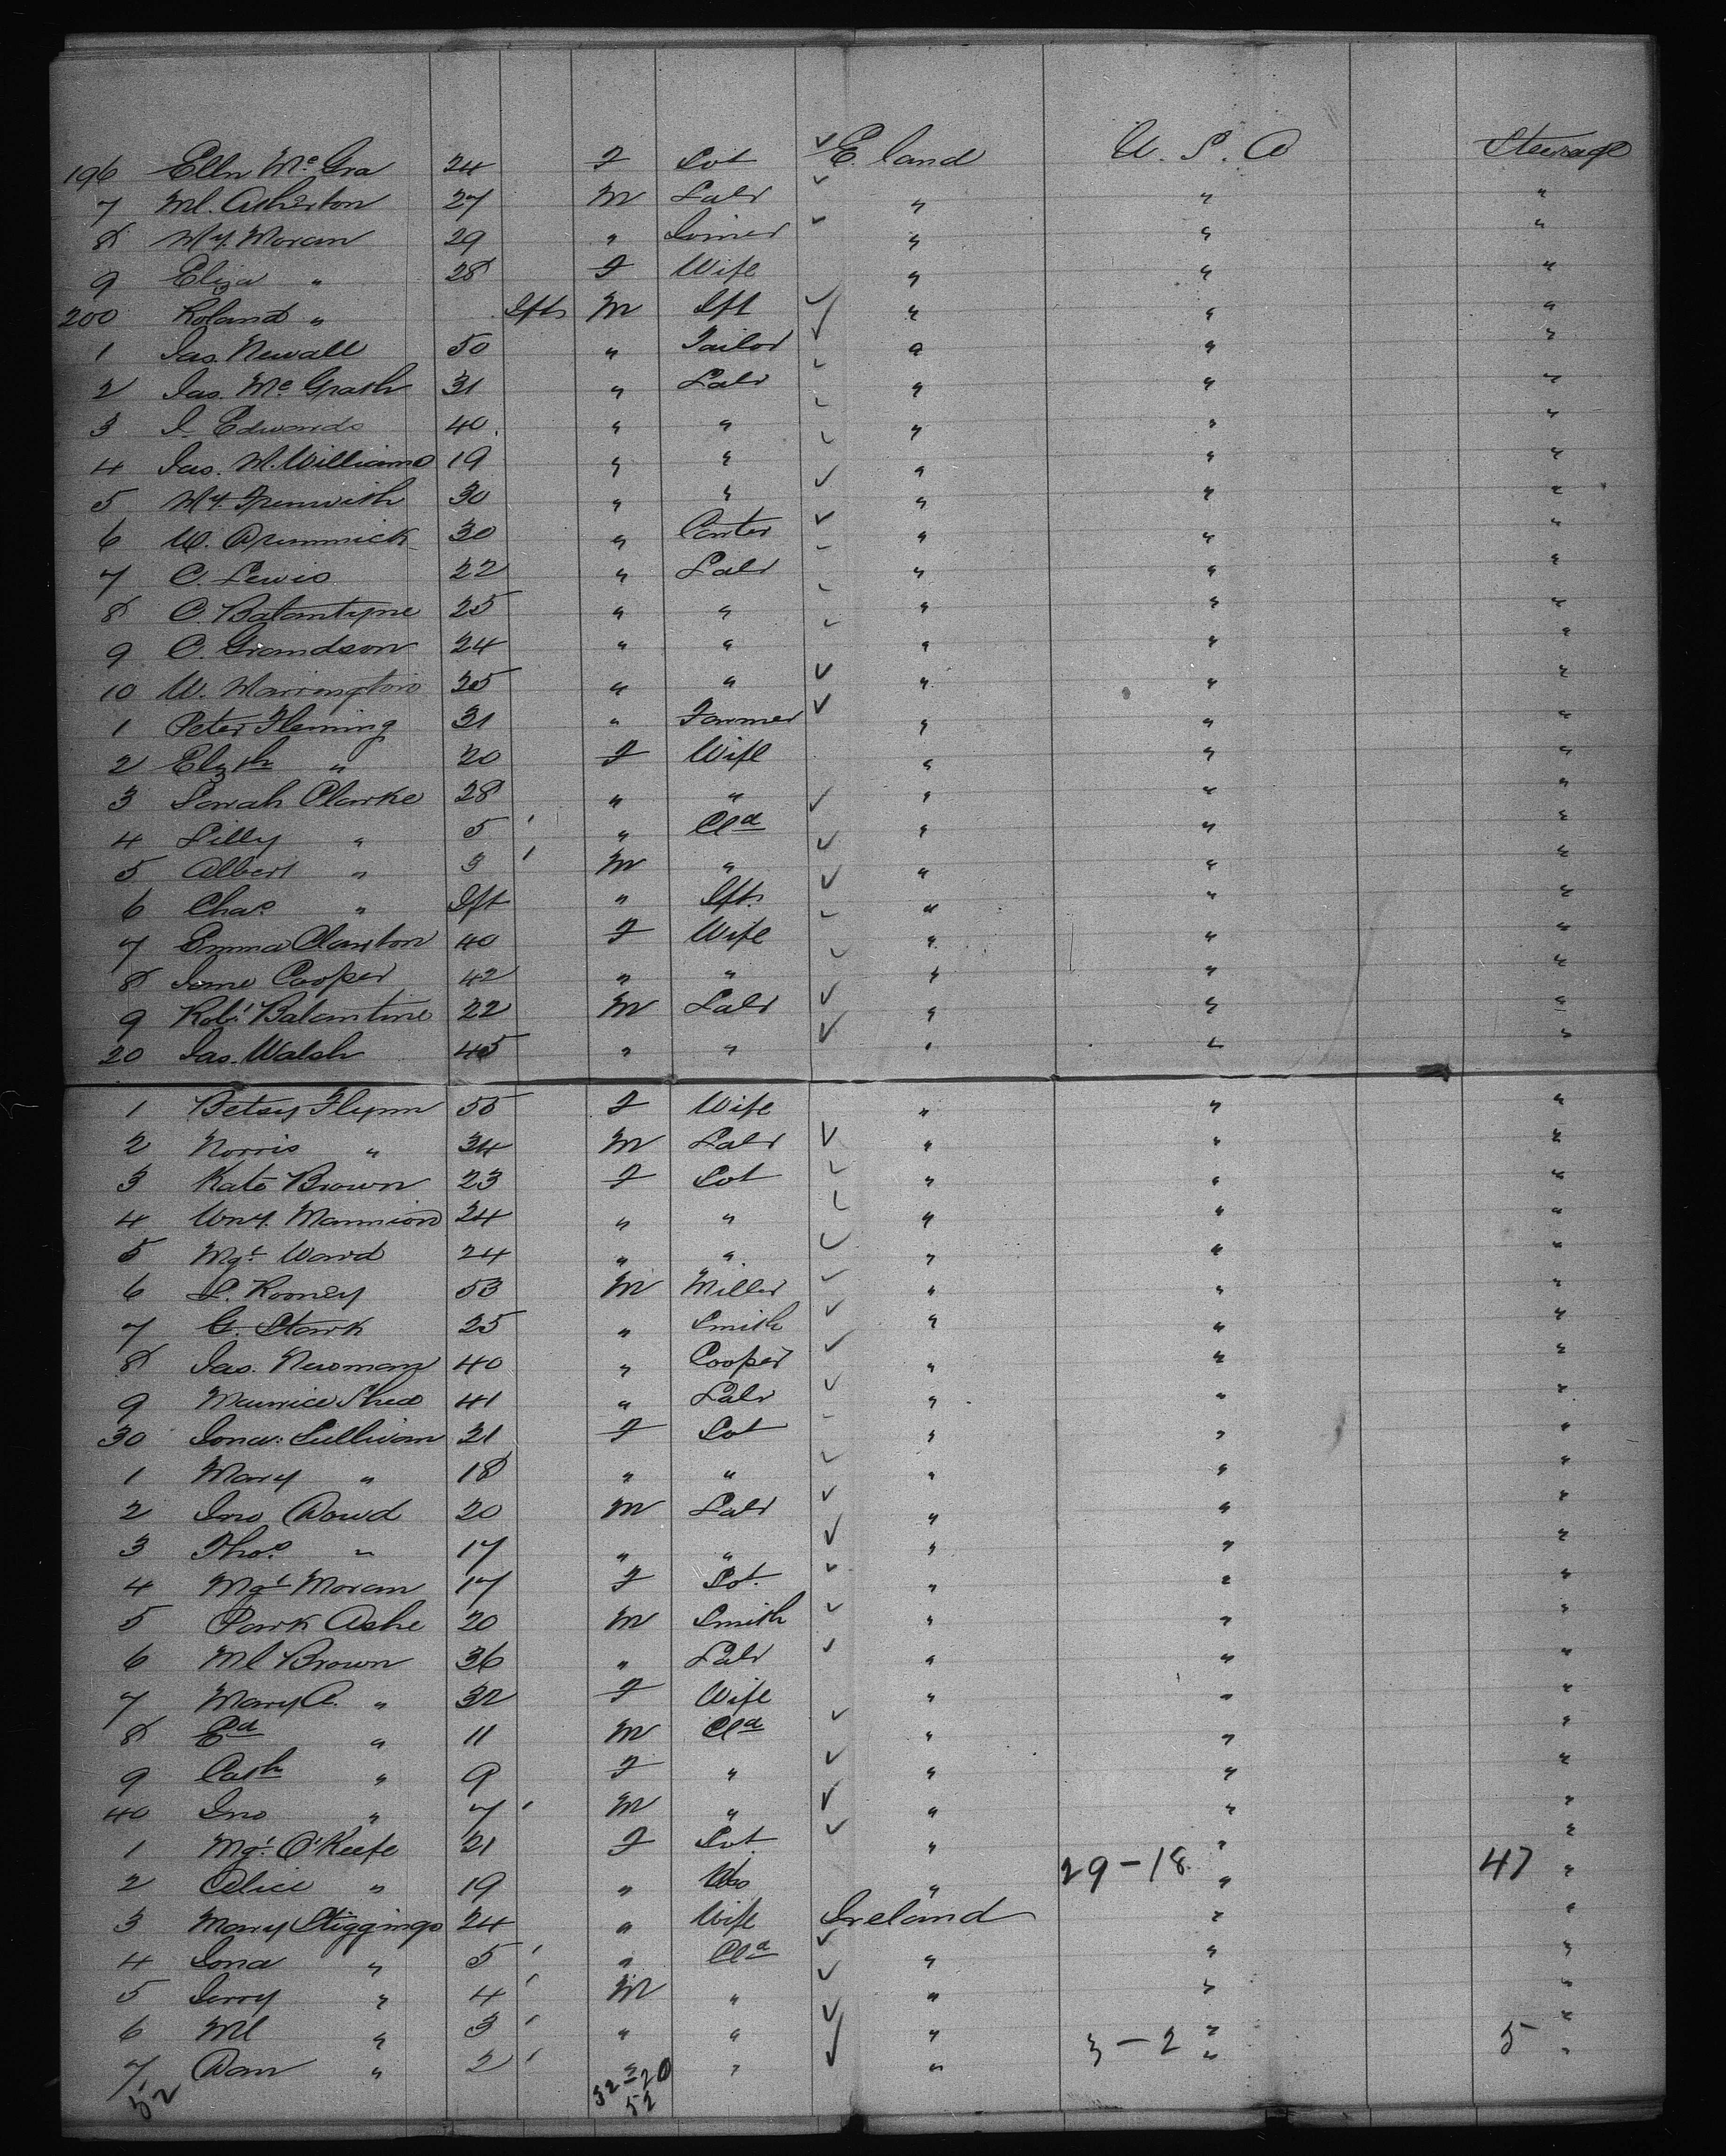 196 Elln Mc Gra 24 F Spt E. land U. S. A Steerage
7 Ml. Atherton 27 M Labr " " "
8 My. Moran 29 " Joiner " " "
9 Eliza " 28 F Wife " " "
200 Roland " Ift M Ift " " "
1 Jas. Newall 50 " Tailor " " "
2 Jas. Mc Grath 31 " Labr " " "
3 J. Edwards 40 " " " " "
4 Jas. W. Williams 19 " " " " "
5 30 " " " " "
6 W. 30 " Carter " " "
7 C. Lewis 22 " Labr " " "
8 C. Balantyne 25 " " " " "
9 C. Grandson 24 " " " " "
10 W. Warrington 25 " " " " "
1 Peter Fleming 31 " Farmer " " "
2 Elzth " 20 F Wife " " "
3 Sarah Clarke 28 " " " " "
4 Lilly " 5 ' " Cld " " "
5 Albert " 3 ' M " " " "
6 Chas " Ift " Ift. " " "
7 Emma Clanton 40 F Wife " " "
8 Jane Cooper 42 " " " " "
9 Robt Balantine 22 M Labr " " "
20 Jas. Walsh 45 " " " " "
1 Betsy Flynn 55 F Wife " " "
2 Norris " 34 M Labr " " "
3 Kate Brown 23 F Spt " " "
4 Wny. Mannion 24 " " " " "
5 Mgt Ward 24 " " " " "
6 L. Rooney 53 M Miller " " "
7 G. Stark 25 " Smith " " "
8 Jas. Newman 40 " Cooper " " "
9 Maurice Shea 41 " Labr " " "
30 Sullivan 21 F Spt " " "
1 Mary " 18 " " " " "
2 Jno Dowd 20 M Labr " " "
3 Thos. " 17 " " " " "
4 Mgt Moran 17 F Spt. " " "
5 Park Ashe 20 M Smith " " "
6 Ml Brown 36 " Labr " " "
7 Mary A. " 32 F Wife " " "
8 Ed " 11 M Cld " " "
9 Cath " 9 F " " " "
40 Jno " 7 ' M " " " "
1 Mgt. O'Keefe 21 F Spt " " "
2 Alice " 19 " " 29-18 " 47 "
3 Mary Stiggings 24 " Wife Ireland " "
4 " 5 ' " Cld " " "
5 Jerry " 4 ' M " " " "
6 Ml " 3 ' " " " 3-2 " 5 "
7 Dan " 2 ' " " " " "
52 32=20
52